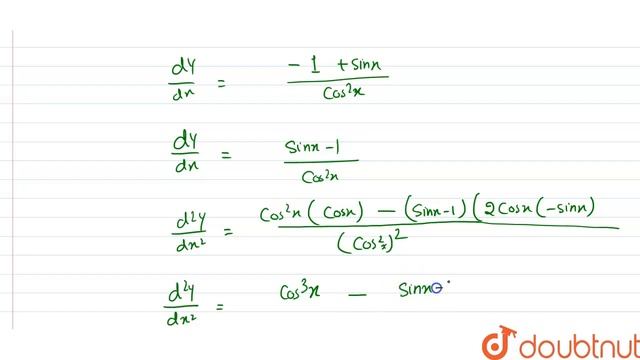 dy/dx = (- 1 + sinx)/(Cos²x)
dy/dx = (Sinx - 1)/(Cos²x)
d²y/dx² = (Cos²x (Cosx) - (Sinx-1) (2Cosx (-sinx))/((Cos²x)²)
d²y/dx² = Cos³x - Sinx
doubtnut